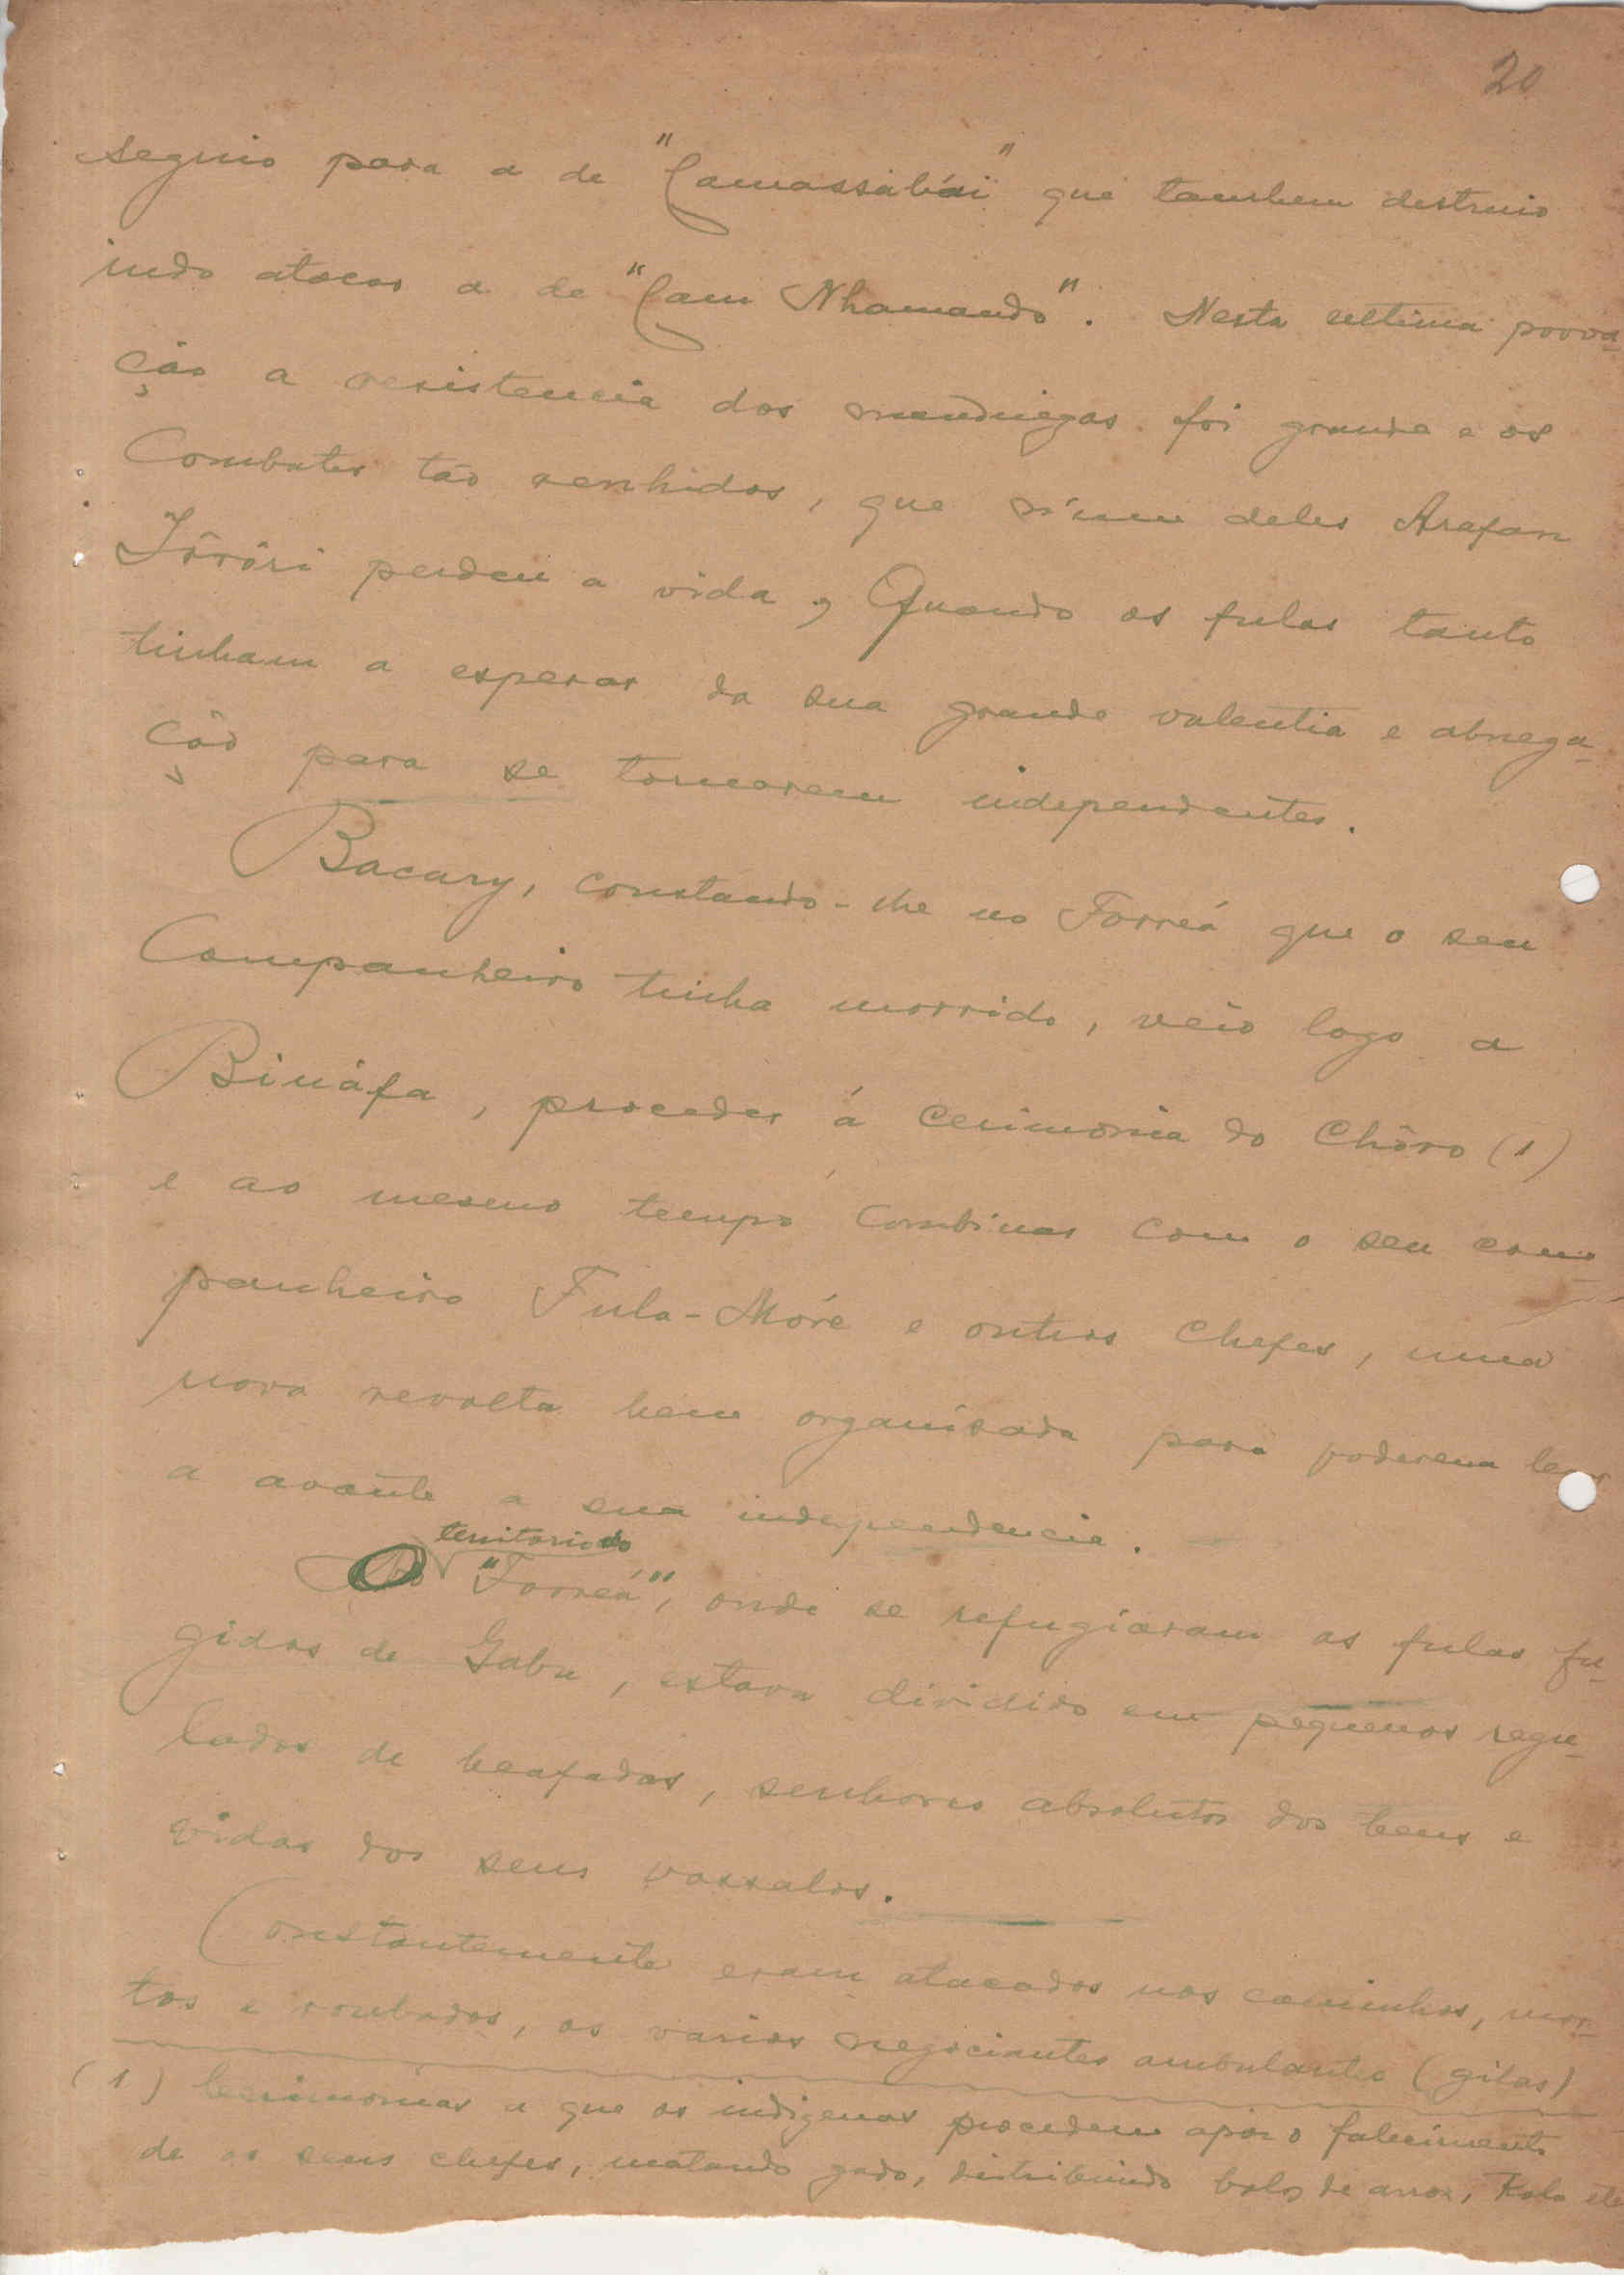 20
seguio para a de "Camassabái" que tambem destruio
indo atacar a de "Cam Nhamando". Nesta ultima povoa-
ção a resistencia dos mandiegas foi grande e os
Combates tão renhidos, que n'um deles Arafan
Jôrôri perdeu a vida, Quando os fulas tanto
tinham a esperar da sua grande valentia e abnega-
ção para se tornarem independentes.
Bacary, constando-lhe no Forreá que o seu
Companheiro tinha morrido, veio logo a
Bináfa, proceder á Cerimonia do Chôro (1)
e ao mesmo tempo Combinar com o seu com-
panheiro Fula-Móre e outros Chefes, uma
nova revolta bem organisada para poderem levar
a avante a sua independencia.
territorio do
O "Forreá", onde se refugiaram os fulas fu-
gidos de Gabu, estava dividido em pequenos regu-
lados de beafadas, senhores absolutos dos bens e
vidas dos seus vassalos.
Constantemente eram atacados nos caminhos, mor-
tos e roubados, os varios negociantes ambulantes (gilas)
(1) Cerimonias a que os indigenas procedem apoz o falecimento
de os seus chefes, matando gado, distribuindo bolos de arroz, Kola etc